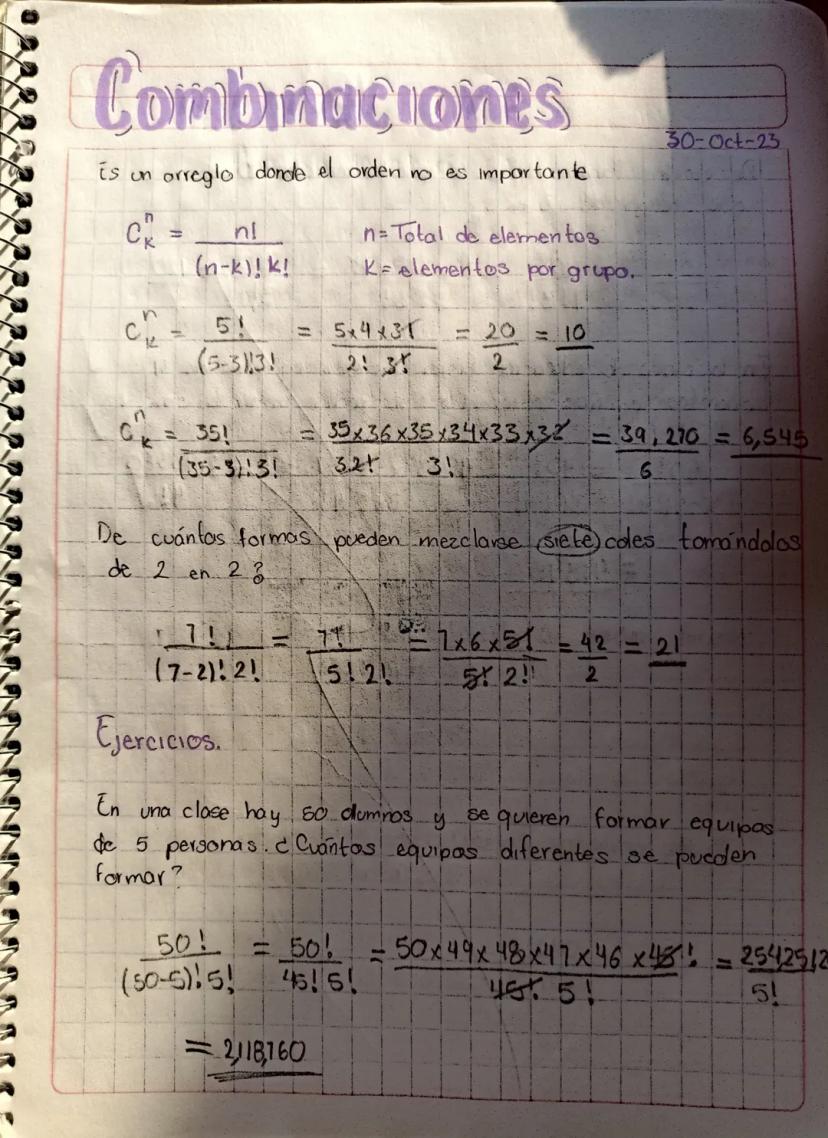 Combinaciones
30-Oct-23
Es un arreglo donde el orden no es importante
C_k^n = n! / (n-k)! k!    n = Total de elementos
k = elementos por grupo.
C_k^n = 5! / (5-3)!3! = 5x4x3! / 2! 3! = 20 / 2 = 10
C_k^n = 35! / (35-3)!3! = 35x36x35x34x33x32 / 32! 3! = 39,270 / 6 = 6,545
De cuántas formas pueden mezclarse siete coles tomándolos
de 2 en 2?
7! / (7-2)! 2! = 7! / 5! 2! = 7x6x5! / 5! 2! = 42 / 2 = 21
Ejercicios.
En una clase hay 50 alumnos y se quieren formar equipos
de 5 personas. ¿Cuántos equipos diferentes se pueden
formar?
50! / (50-5)! 5! = 50! / 45! 5! = 50x49x48x47x46x45! / 45! 5! = 2542512 / 5!
= 2,118,760